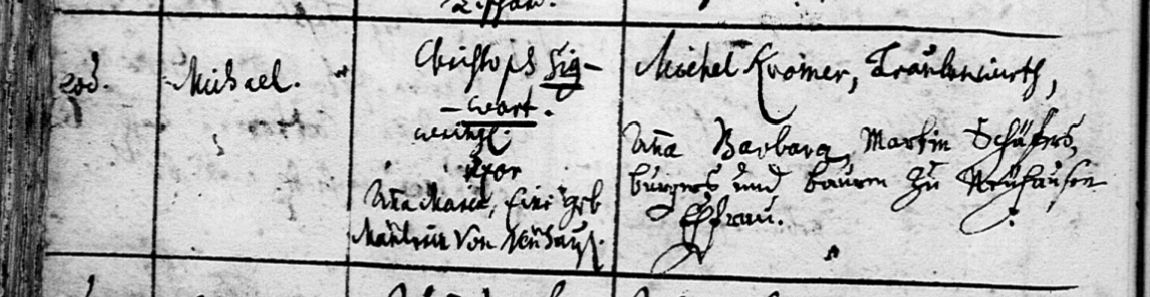 eod.
Michael.
Christoph Sig-
-wart.
weingl.
uxor
Aña Maria, Eine geb
von Neuhauß.
Michel Kromer, Traubenwirth,
Aña Barbara, Martin Schäfers,
burgers und bauren zu Neuhausen
Ehfrau.